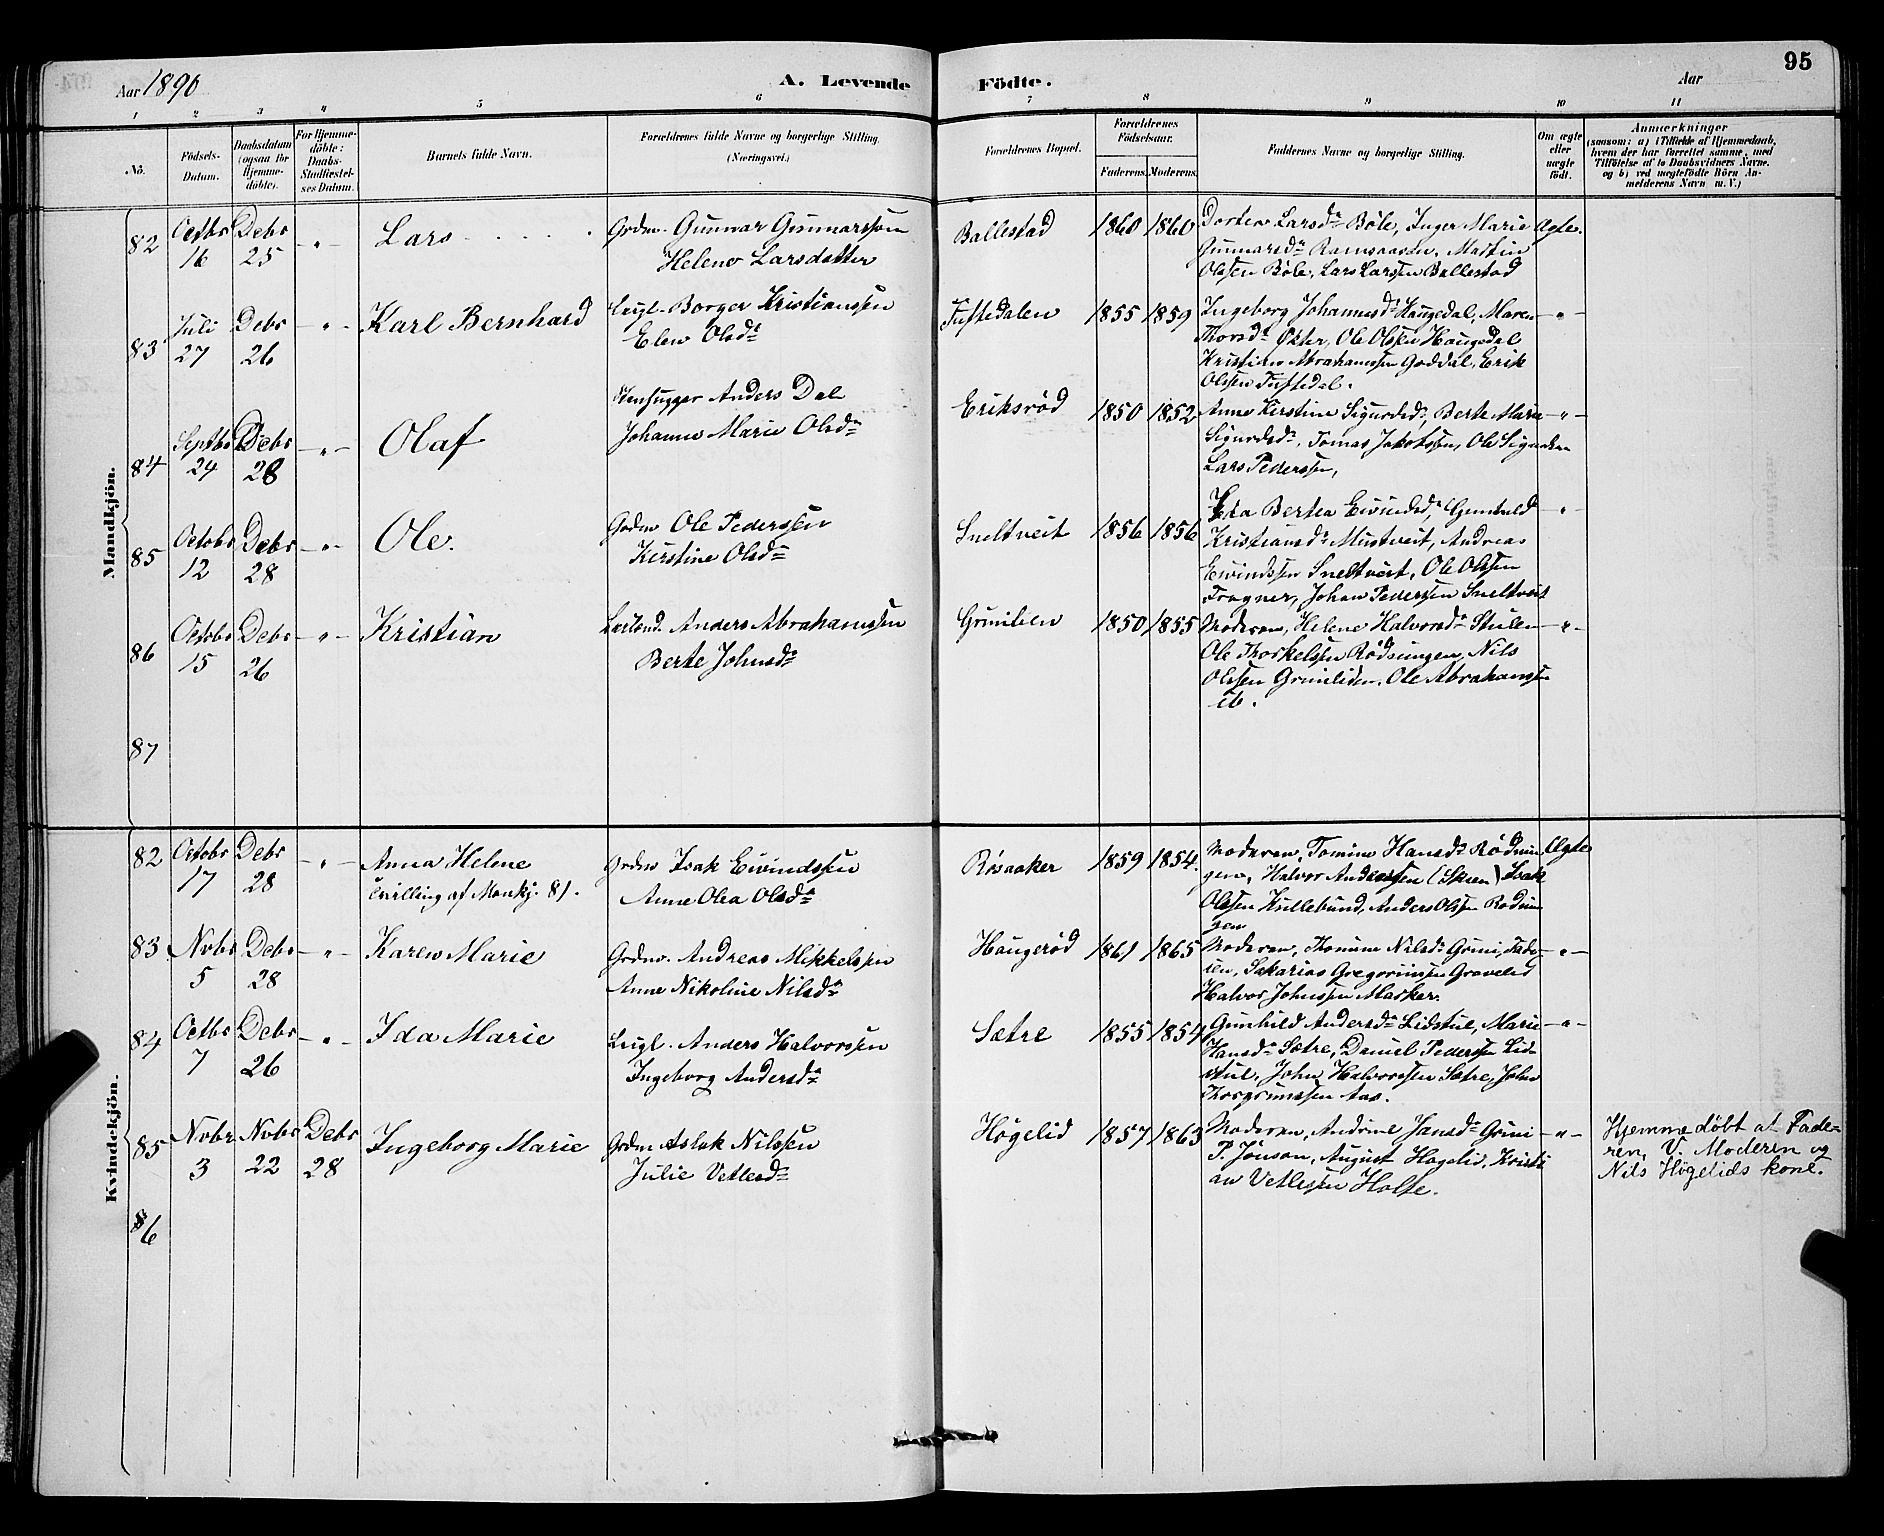 95
Aar 1890 A. Levende Födte. Aar
1 2 3 4 5 6 7 8 9 10 11
No.
Födsels-Datum.
Daabsdatum (ogsaa for Hjemme-döbte).
For Hjemme-döbte: Daabs-Stadfæstel-ses Datum.
Barnets fulde Navn.
Forældrenes fulde Navne og borgerlige Stilling.
(Næringsvei.)
Forældrenes Bopæl.
Forældrenes Födselsaar.
Faderens. Moderens.
Faddernes Navne og borgerlige Stilling.
Om ægte eller uægte födt.
Anmærkninger
(saasom: a) i Tilfælde af Hjemmedaab,
hvem der har forrettet samme, med
Tilföielse af to Daabsvidners Navne.
og b) ved uægtefödte Börn An-
melderens Navn m. V.)
Mandkjön.
82 Octbr 16 Debr 25 - " - Lars Grdm. Gunnar Gunnarssøn
Helene Larsdatter
Ballestad 1860 1860 Dorthea Larsdr Bøle, Inger Marie Ægte.
Gunnarsdr Ramsaasen, Martin
Olssen Bøle, Lars Larssen Ballestad
83 Juli 27 Debr 26 - " - Karl Bernhard Leigl. Borger Kristianssen
Elen Olsdr
Tuftedalen 1855 1859 Ingeborg Johannesdr Haugedal, Maren - " -
Thorsdr Øster, Ole Olssen Haugedal
Kristian Abrahamssen Goddal, Erik
Olssen Tuftedal.
84 Septbr 24 Debr 28 - " - Olaf Stenhugger Anders Dal
Johanne Marie Olsdr
Eriksrød 1850 1852 Anne Kirstine Sigurdsdr, Berte Marie - " -
Sigurdsdr, Tomas Jakobssen, Ole Sigurdsen
Lars Pederssen,
85 Octobr 12 Debr 28 - " - Ole. Grdm Ole Pederssen
Kirstine Olsdr
Sneltveit 1856 1856 Berthea Eivindsdr, Gunhild - " -
Kristiansdr Mustveit, Andreas
Eivindssen Sneltveit, Ole Olssen
Fragner, Johan Pederssen Sneltveit
86 Octobr 15 Debr 26 - " - Kristian Anders Abrahamssen
Berte Johnsdr
Grinilien 1850 1855 Moderen, Helene Halvorsdr Stulen - " -
Ole Thorkelssen Rødsungen, Nils
Olssen Grinilien. Ole Abrahamssen
ib.
87
Kvindekjön.
82 Octobr 17 Debr 28 - " - Anna Helene
Tvilling af Mankj. 81.
Grdm Isak Eivindssen
Anne Olea Olsdr
Røsaaker 1859 1854. Moderen, Tomine Hansdr Rødsun Ægte
gen, Halvor Anderssen (Skien) Isak
Olssen Kullebund, Anders Olssen Rødsun
gen
83 Nvbr 5 Debr 28 - " - Karen Marie Grdm. Andreas Mikkelssen
Anne Nikoline Nilsdr
Haugerød 1861 1865 Moderen, Thomine Nilsdr Grini, Fade- - " -
ren, Sakarias Gregoriussen Gravelid
Halvor Johnssen Marker.
84 Octbr 7 Debr 26 - " - Ida Marie Leigl. Anders Halvorssen
Ingeborg Andersdr
Sætre 1855 1854 Gunhild Andersdr Lidstul, Marie - " -
Hansdr Sætre, Daniel Pederssen Lid
stul, John Halvorssen Sætre, John
Thorgrimssen Aas.
85 Nvbr 3 Nvbr 22 Debr 28 Ingeborg Marie Grdm Aslak Nilssen
Julie Vetlesdr
Høgelid 1857 1863 Moderen, Andrine Jansdr Grini - " -
P. Jonson, August Høgelid, Kristi
an Vetlessen Holte.
Hjemme døbt at Fade-
ren, V. Moderen og
Nils Høgelids kone.
86